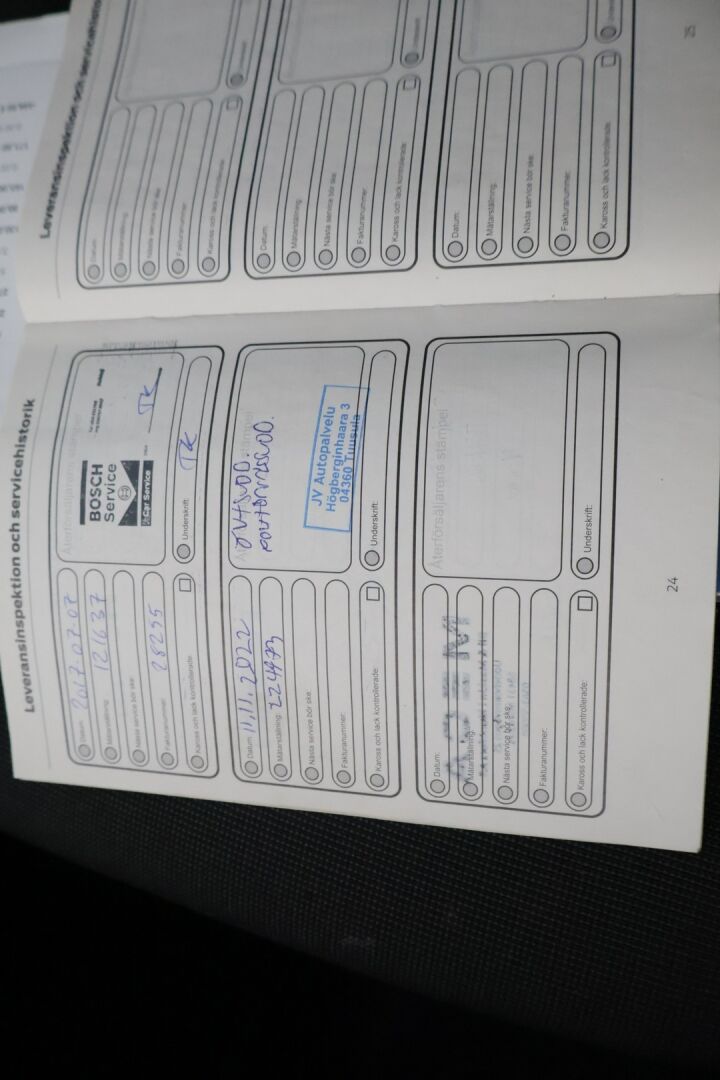 Leveransinspektion och servicehistorik
Datum: 2017.07.07
Mätarställning: 121637
Nästa service bör ske:
Fakturanummer: 28255
Kaross och lack kontrollerade:
BOSCH
Service
Car Service
TK
Underskrift: TK
Datum: 11.11.2022
Mätarställning: 224973
Nästa service bör ske:
Fakturanummer:
Kaross och lack kontrollerade:
JV Autopalvelu
Högberginhaara 3
04360 Tuusula
Underskrift:
Datum:
Mätarställning:
Nästa service bör ske:
Fakturanummer:
Kaross och lack kontrollerade:
Återförsäljarens stämpel
Underskrift:
24
Leveransinspektion och servicehistorik
Datum:
Mätarställning:
Nästa service bör ske:
Fakturanummer:
Kaross och lack kontrollerade:
Datum:
Mätarställning:
Nästa service bör ske:
Fakturanummer:
Kaross och lack kontrollerade:
Datum:
Mätarställning:
Nästa service bör ske:
Fakturanummer:
Kaross och lack kontrollerade:
25